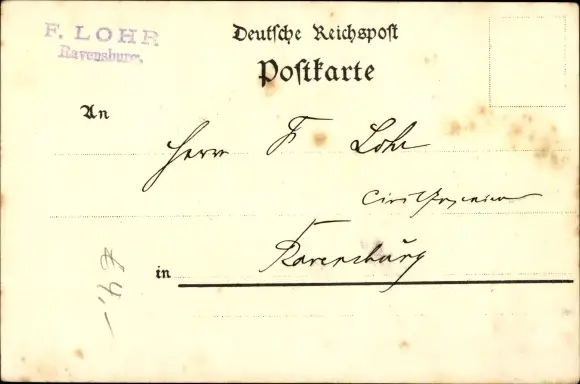 F. LOHR
Ravensburg.
Deutsche Reichspost
Postkarte
An
Herrn F Lohr
Civilingenieur
in Ravensburg
4,-